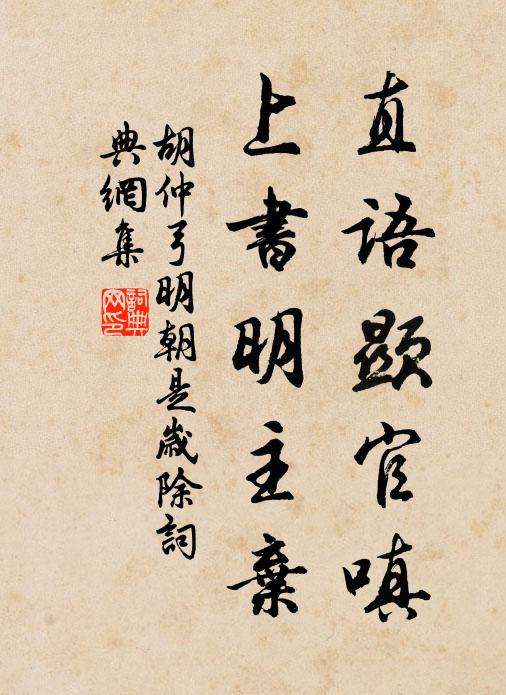 直語顯官嗔
上書明主棄
胡仲弓明朝是歲除詞
典網集
詞典網印